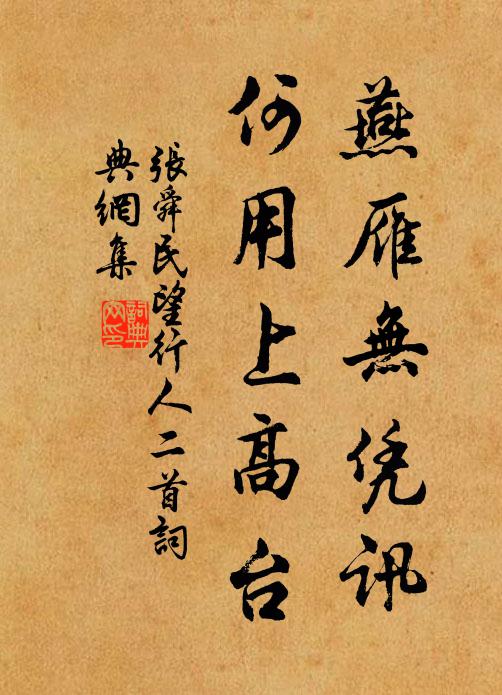 燕雁無凭訊
何用上高台
張舜民望行人二首詞
典網集
詞典網印